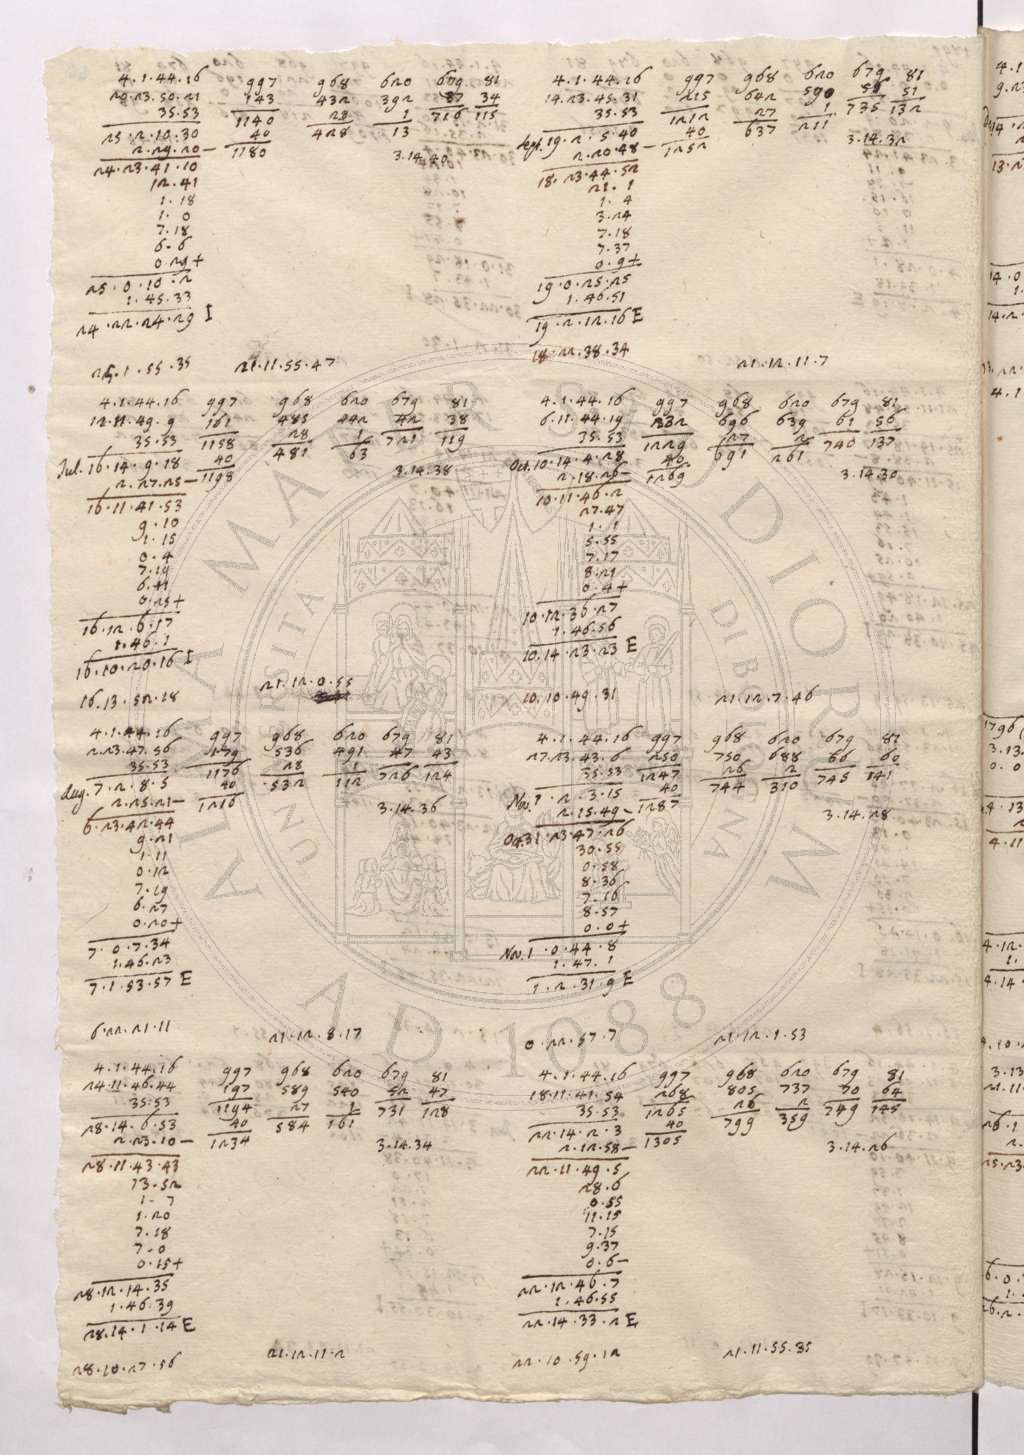 4.1.44.16 997 968 620 679 81
20.23.50.21 143 432 392 37 34
35.53 1140 28 1 716 115
25.2.10.30 40 428 13
2.29.20− 1180 3.14.40
24.23.41.10
12.41
1.18
1.0
7.18
6.6
0.29+
25.0.10.2
1.45.33
24.22.24.29 I
25.1.55.35 21.11.55.47
4.1.44.16 997 968 620 679 81
12.11.49.9 161 485 442 42 38
35.53 1158 28 1 721 119
Jul. 16.14.9.18 40 481 63
2.27.25− 1198 3.14.38
16.11.41.53
9.10
1.15
0.4
7.19
6.41
0.25+
16.12.6.17
1.46.1
16.10.20.16 I
16.13.52.18 21.12.0.55
4.1.44.16 997 968 620 679 81
2.23.47.56 179 536 491 47 43
35.53 1176 28 1 726 124
Aug. 7.2.8.5 40 532 112
2.25.21− 1216 3.14.36
6.23.42.44
9.21
1.11
0.12
7.19
6.27
0.20+
7.0.7.34
1.46.23
7.1.53.57 E
6.22.21.11 21.12.8.17
4.1.44.16 997 968 620 679 81
24.11.46.44 197 589 540 52 47
35.53 1194 27 1 731 128
28.14.6.53 40 584 161
2.23.10− 1234 3.14.34
28.11.43.43
13.52
1.7
1.20
7.18
7.0
0.15+
28.12.14.35
1.46.39
28.14.1.14 E
28.10.27.56 21.12.11.2
4.1.44.16 997 968 620 679 81
14.23.45.31 215 642 590 56 51
35.53 1212 27 1 735 132
Sept. 19.2.5.40 40 637 211
2.20.48− 1252 3.14.32
18.23.44.52
21.1
1.4
3.24
7.18
7.37
0.9+
19.0.25.25
1.46.51
19.2.12.16 E
18.22.38.34 21.12.11.7
4.1.44.16 997 968 620 679 81
6.11.44.19 232 696 639 61 56
35.53 1229 27 2 740 137
Oct. 10.14.4.28 40 691 261
2.18.26− 1269 3.14.30
10.11.46.2
27.47
1.1
5.55
7.17
8.21
0.4+
10.12.36.27
1.46.56
10.14.23.23 E
10.10.49.31 21.12.7.46
4.1.44.16 997 968 620 679 81
27.23.43.6 250 750 688 66 60
35.53 1247 26 2 745 141
Nov. 1.2.3.15 40 744 310
2.15.49− 1287 3.14.28
Oct. 31.23.47.26
30.55
0.58
8.36
7.16
8.57
0.0+
Nov. 1.0.44.8
1.47.1
1.2.31.9 E
0.22.57.7 21.12.1.53
4.1.44.16 997 968 620 679 81
18.11.41.54 268 805 737 70 64
35.53 1265 26 2 749 145
22.14.2.3 40 799 359
2.12.58− 1305 3.14.26
22.11.49.5
28.6
0.55
11.15
7.15
9.37
0.6−
22.12.46.7
1.46.55
22.14.33.2 E
22.10.59.12 21.11.55.35
ALMA MATER STUDIORUM
UNIVERSITÀ DI BOLOGNA
A.D. 1088